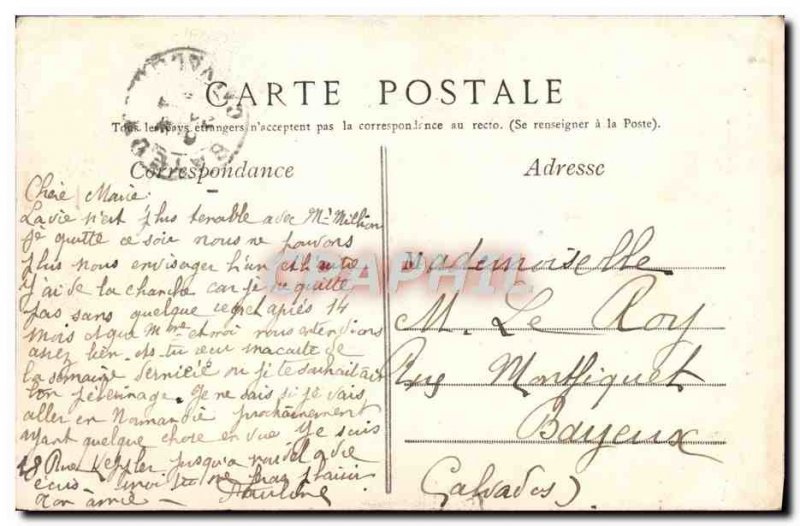 CARTE POSTALE
Tous les pays étrangers n'acceptent pas la correspondance au recto. (Se renseigner à la Poste).
Correspondance
Adresse
Chère Marie
La vie n'est plus tenable avec Mr Million
je quitte ce soir nous ne pouvons
plus nous envisager l'un et l'autre
j'ai de la chance car je ne quitte
pas sans quelque regret après 14
mois et que Mme et moi nous entendions
assez bien. As tu reçu ma carte de
la semaine dernière ou je te souhaitais
bon pélerinage. Je ne sais si je vais
aller en Normandie prochainement
ayant quelque chose en vue. Je suis
18 Rue Keppler jusqu'a nouvel avis
écris moi tu me feras plaisir
ton amie
Mademoiselle
M. Le Roy
Rue Montfiquet
Bayeux
Calvados
CPAPHIL